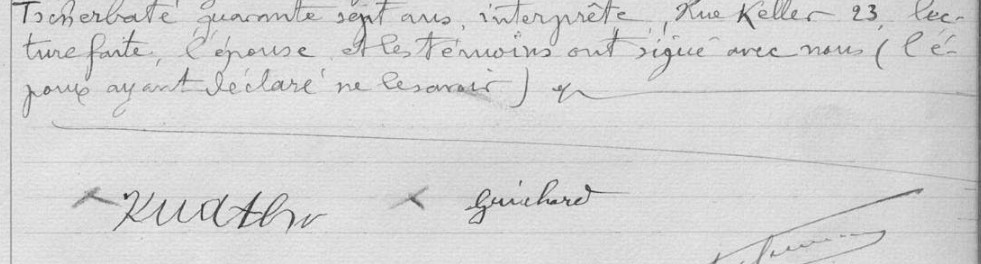 Tscherbaté quarante sept ans, interprête, Rue Keller 23, lec-
ture faite, l'épouse et les témoins ont signé avec nous (l'é-
poux ayant déclaré ne le savoir)
Guichard